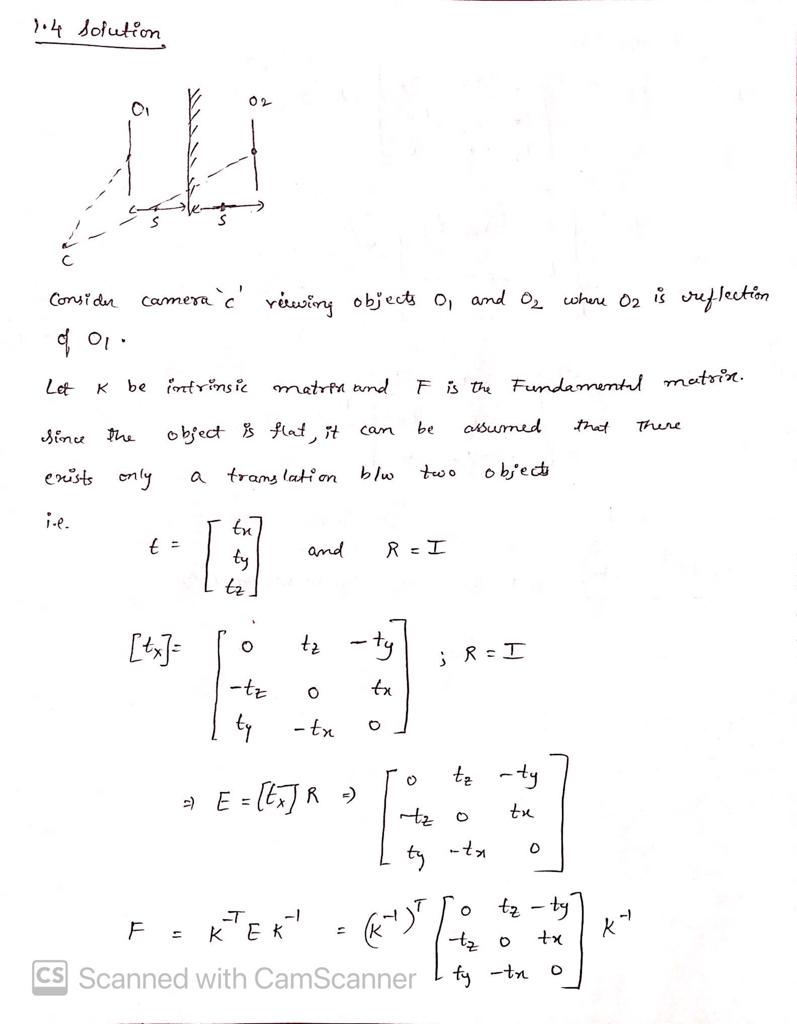 1.4 Solution
O1 O2
S S
C
Consider camera 'c' viewing objects O1 and O2 where O2 is reflection
of O1.
Let K be intrinsic matrix and F is the Fundamental matrix.
Since the object is flat, it can be assumed that there
exists only a translation b/w two objects
i.e.
t = [tx ty tz] and R = I
[tx] = [0 tz -ty
-tz 0 tx
ty -tx 0] ; R = I
=> E = [tx] R => [0 tz -ty
-tz 0 tx
ty -tx 0]
F = K^-T E K^-1 = (K^-1)^T [0 tz -ty
-tz 0 tx
ty -tx 0] K^-1
CS Scanned with CamScanner